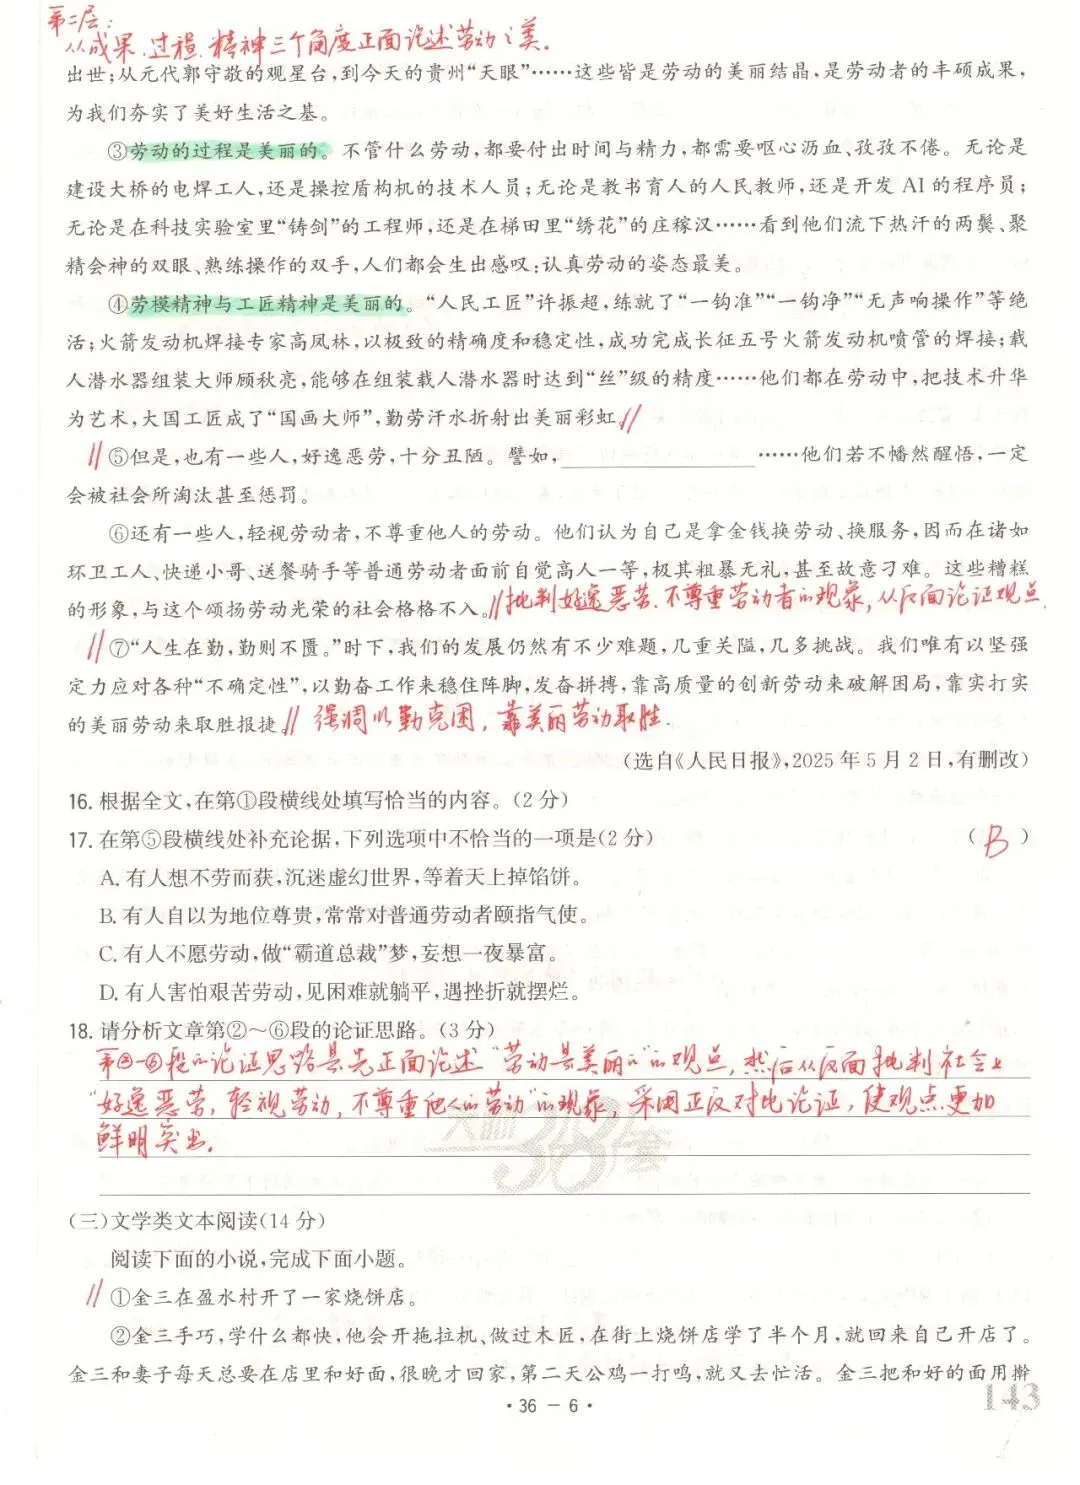 第二层:
从成果、过程、精神三个角度正面论述劳动之美.
出世;从元代郭守敬的观星台,到今天的贵州“天眼”……这些皆是劳动的美丽结晶,是劳动者的丰硕成果,
为我们夯实了美好生活之基。
③劳动的过程是美丽的。不管什么劳动,都要付出时间与精力,都需要呕心沥血、孜孜不倦。无论是
建设大桥的电焊工人,还是操控盾构机的技术人员;无论是教书育人的人民教师,还是开发 AI 的程序员;
无论是在科技实验室里“铸剑”的工程师,还是在梯田里“绣花”的庄稼汉……看到他们流下热汗的两鬓、聚
精会神的双眼、熟练操作的双手,人们都会生出感叹:认真劳动的姿态最美。
④劳模精神与工匠精神是美丽的。“人民工匠”许振超,练就了“一钩准”“一钩净”“无声响操作”等绝
活;火箭发动机焊接专家高凤林,以极致的精确度和稳定性,成功完成长征五号火箭发动机喷管的焊接;载
人潜水器组装大师顾秋亮,能够在组装载人潜水器时达到“丝”级的精度……他们都在劳动中,把技术升华
为艺术,大国工匠成了“国画大师”,勤劳汗水折射出美丽彩虹。//
//⑤但是,也有一些人,好逸恶劳,十分丑陋。譬如,____________……他们若不幡然醒悟,一定
会被社会所淘汰甚至惩罚。
⑥还有一些人,轻视劳动者,不尊重他人的劳动。他们认为自己是拿金钱换劳动、换服务,因而在诸如
环卫工人、快递小哥、送餐骑手等普通劳动者面前自觉高人一等,极其粗暴无礼,甚至故意刁难。这些糟糕
的形象,与这个颂扬劳动光荣的社会格格不入。//批判好逸恶劳、不尊重劳动者的现象,从反面论证观点.
//⑦“人生在勤,勤则不匮。”时下,我们的发展仍然有不少难题,几重关隘,几多挑战。我们唯有以坚强
定力应对各种“不确定性”,以勤奋工作来稳住阵脚,发奋拼搏,靠高质量的创新劳动来破解困局,靠实打实
的美丽劳动来取胜报捷。// 强调以勤克困,靠美丽劳动取胜.
(选自《人民日报》,2025 年 5 月 2 日,有删改)
16. 根据全文,在第①段横线处填写恰当的内容。(2 分)
17. 在第⑤段横线处补充论据,下列选项中不恰当的一项是(2 分) ( B )
A. 有人想不劳而获,沉迷虚幻世界,等着天上掉馅饼。
B. 有人自以为地位尊贵,常常对普通劳动者颐指气使。
C. 有人不愿劳动,做“霸道总裁”梦,妄想一夜暴富。
D. 有人害怕艰苦劳动,见困难就躺平,遇挫折就摆烂。
18. 请分析文章第②~⑥段的论证思路。(3 分)
第②-⑥段的论证思路是先正面论述“劳动是美丽的”的观点,然后从反面批判社会上
“好逸恶劳,轻视劳动,不尊重他人的劳动”的现象,采用正反对比论证,使观点更加
鲜明突出.
天利38套
(三)文学类文本阅读(14 分)
阅读下面的小说,完成下面小题。
//①金三在盈水村开了一家烧饼店。
②金三手巧,学什么都快,他会开拖拉机、做过木匠,在街上烧饼店学了半个月,就回来自己开店了。
金三和妻子每天总要在店里和好面,很晚才回家,第二天公鸡一打鸣,就又去忙活。金三把和好的面用擀
·36-6·
143